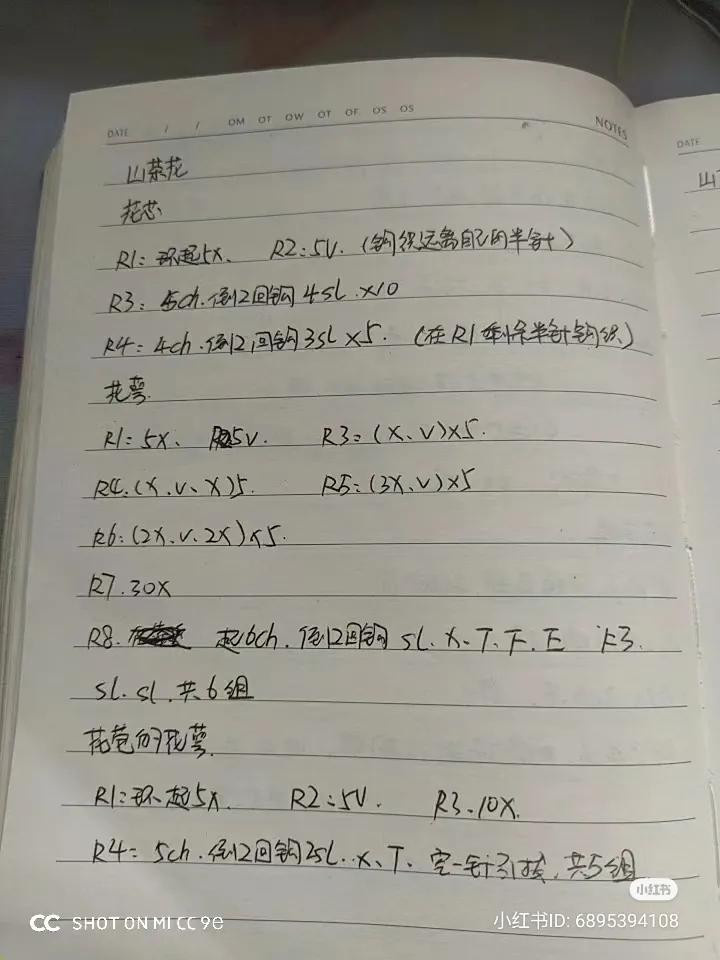 DATE / / OM OT OW OT OF OS OS NOTES
DATE
山茶花
山
花芯
R1: 环起5X、 R2:5V.(钩织远离自己的半针)
R3: 5ch.倒2回钩4sl.×10
R4: 4ch.倒2回钩3sl×5.(在R1剩余半针钩织)
花萼.
R1:5X、 R2 5V. R3:(X、V)×5.
R4.(X.V、X)5. R5:(3X、V)×5
R6:(2X、V.2X)×5.
R7.30X
R8. 起6ch.倒2回钩 sl.X、T、F.E 3.
sl.sl.共6组
花苞的花萼.
R1:环起5X. R2:5V. R3.10X.
R4: 5ch.倒2回钩2sl..X、T、空一针引拔.共5组
小红书
SHOT ON MI CC 9e
小红书ID: 6895394108